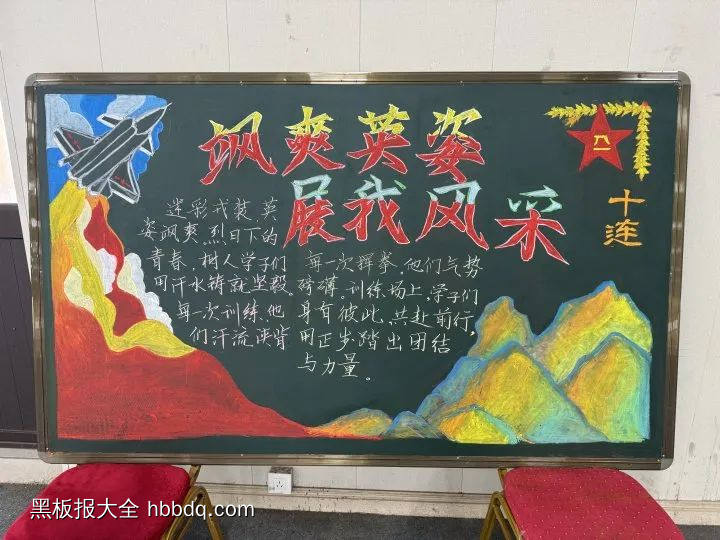 飒爽英姿
展我风采
八一
十连
迷彩戎装英
姿飒爽.烈日下的
青春,树人学子们
用汗水铸就坚毅。
每一次训练,他
们汗流浃背
每一次挥拳,他们气势
磅礴。训练场上,学子们
身有彼此,共赴前行,
用正步踏出团结
与力量。
黑板报大全 hbbdq.com